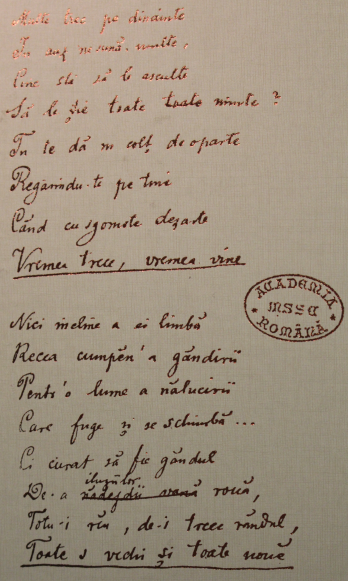 Multe trec pe dinainte
În auz ne sună multe,
Cine stă să le asculte
Să le ție toate minte?
Tu te dă 'n colț deoparte
Regăsindu-te pe tine
Când cu sgomote deșarte
Vremea trece, vremea vine
ACADEMIA
MSSC
ROMÂNĂ
Nici incline a ei limbă
Recea cumpĕn'a gândirii
Pentr'o lume a nălucirii
Care fuge și se schimbă...
Ci curat să fie gândul
iluziilor
De-a nădejdii vană rouă,
Totu-i rău, de-i trece rândul,
Toate-s vechi și toate nouă